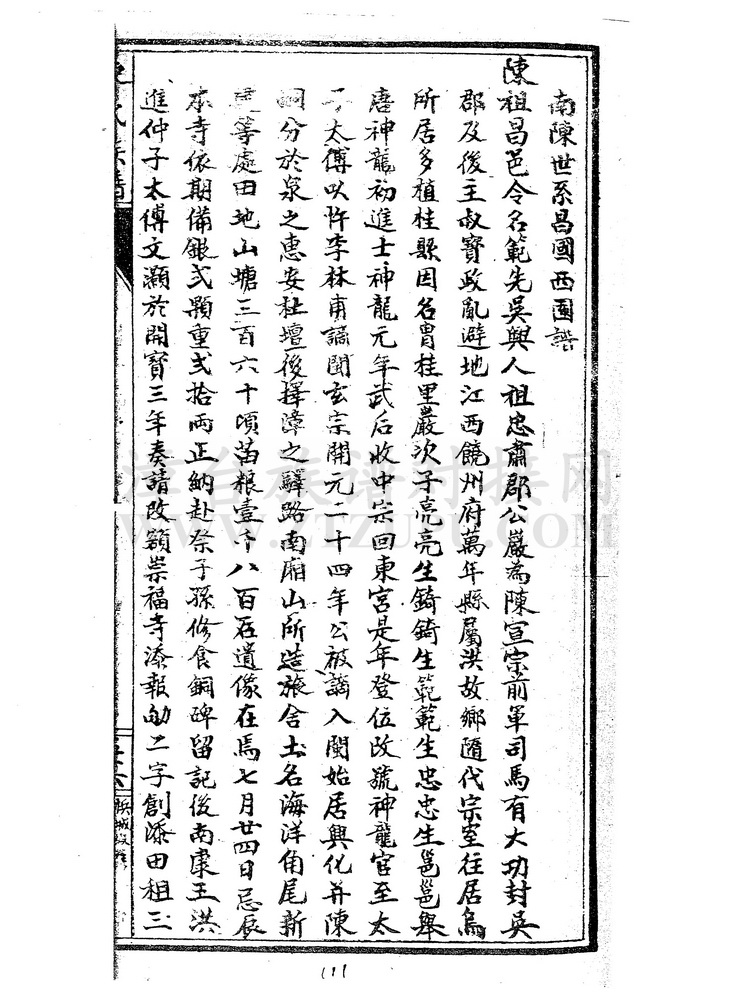 南陳世系昌國西國譜
陳祖昌邑令名範先吳興人祖忠肅郡公嚴為陳宣宗前軍司馬有大功封吳
郡及後主叔寶政亂避地江西饒州府萬年縣屬洪故鄉隨代宗室往居烏
所居多植桂縣因名胄桂里嚴次子亮亮生錡錡生範範生忠忠生邕邕舉
唐神龍初進士神龍元年武后收中宗回東宮是年登位改號神龍官至太
子太傅以忤李林甫謫閩玄宗開元二十四年公被謫入閩始居興化并陳
嗣分於泉之惠安社壇後擇漳之驛路南廂山所造旅舍土名海洋角尾新
等處田地山塘三百六十頃苗粮壹千八百石遺像在焉七月廿四日忌辰
本寺依期備銀弍顆重弍拾兩正納赴祭子孫修食銅碑留記後南康王洪
進仲子太傅文灝於開寶三年奏請改額崇福寺添報劬二字創添田租三
氏族譜
(1)
漳台族谱对接网
WWW.ZTZUPU.COM